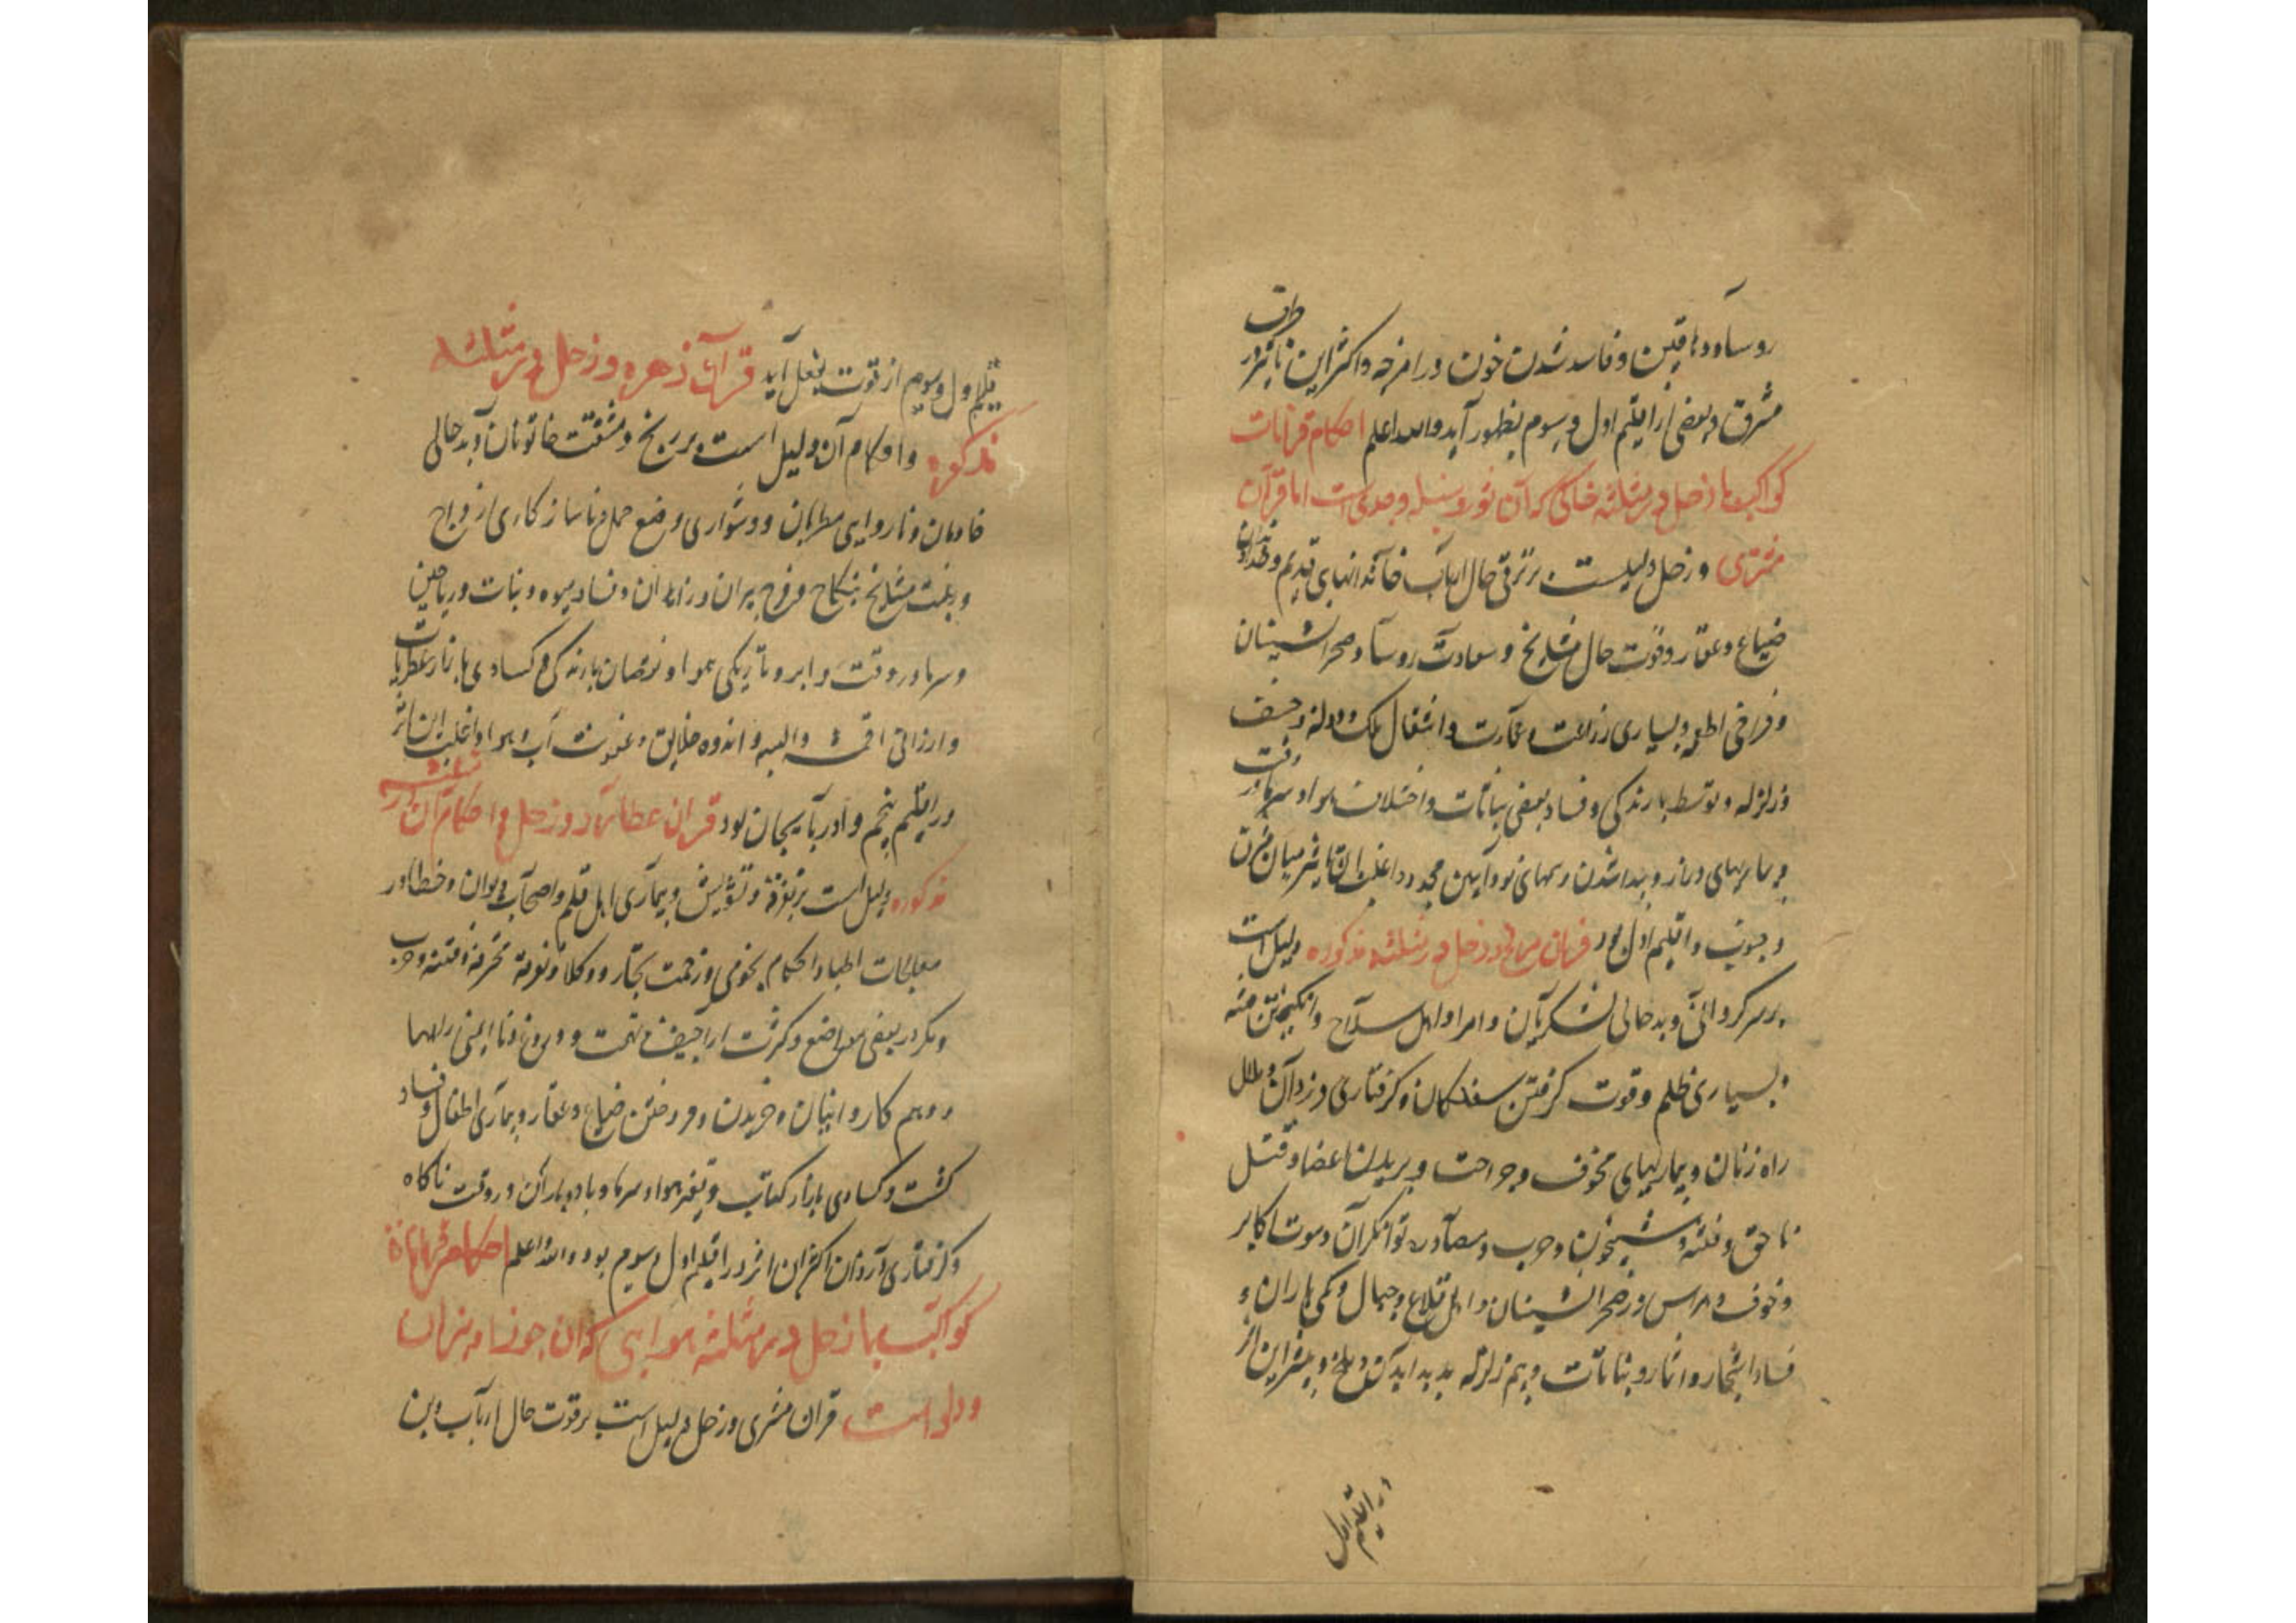 روسا و دهاقین و فاسد شدن خون در امزجه و اکثر این تاثیر در طرف
مشرق و بعضی از اقلیم اول و سوم بظهور آید والله اعلم احکام قرانات
کواکب با زحل در مثلثه خاکی که آن ثور و سنبله و جدی است اما قرآن
مشتری و زحل دلیلست بر ترقی حال ارباب خاندانهای قدیم و خداوندان
ضیاع و عقار و قوت حال مشایخ و سعادت روسا و صحرانشینان
و فراخی اطعمه و بسیاری زراعت و عمارت و اشغال ملک و دولت و خسف
و زلزله و توسط بارندگی و فساد بعضی نباتات و اختلاف هوا و سرما در وقت
و بیماریهای دراز و پیدا شدن رسمهای نو و آیین مجدد و اغلب این تاثیر میان مشرق
و جنوب و اقلیم اول بود قران مریخ و زحل در مثلثه مذکوره دلیل است
بر سرکردانی و بدحالی لشکریان و امرا و اهل سلاح و انگیختن فتنه
و بسیاری ظلم و قوت گرفتن سفلگان و گرفتاری دزدان و
راه زنان و بیماریهای مخوف و جراحت و بریدن اعضا و قتل
ناحق و فتنه و شبیخون و حرب و مصادره توانگران و موت اکابر
و خوف و هراس در صحرانشینان و اهل قلاع و جبال و کمی باران و
فساد اشجار و اثمار و نباتات و بیم زلزله پدید آید و بیشتر این اثر
در اقلیم اول
قلیم اول و سوم از قوت بفعل آید قرآن زهره و زحل در مثلثه
مذکوره و احکام آن دلیل است بر رنج و مشقت خاتونان و بدحالی
خادمان و ناروایی مطربان و دشواری وضع حمل و ناسازکاری ازواج
و رغبت مشایخ بنکاح و فساد میوه و نبات و ریاحین
و سرما در وقت و ابر و تاریکی هوا و نقصان بارندگی و کسادی بازار عطریات
و ارزانی اقمشه و البسه و اندوه خلایق و عفونت آب و هوا و اغلب این تاثیر
در اقلیم پنجم و آذربایجان بود قران عطارد و زحل و احکام آن در مثلثه
مذکوره دلیل است بر تفرقه و تشویش و بیماری اهل قلم و اصحاب دیوان و خطا در
معالجات اطبا و احکام نجومی و زحمت تجار و وکلا و فتنه و حرب
و مکر در بعضی مواضع و کثرت اراجیف و تهمت و دروغ و ناایمنی راهها
و وهم کاروانیان و خریدن و فروختن ضیاع و عقار و بیماری اطفال و فساد
کشت و کسادی بازار کتاب و تغیر هوا و سرما و باد و باران در وقت ناگاه
و گرفتاری دزدان اکثر این اثر در اقلیم اول و سوم بود والله اعلم احکام قرانات
کواکب با زحل در مثلثه هوایی که آن جوزا و میزان
و دلو است قران مشتری و زحل دلیل است بر قوت حال ارباب دین